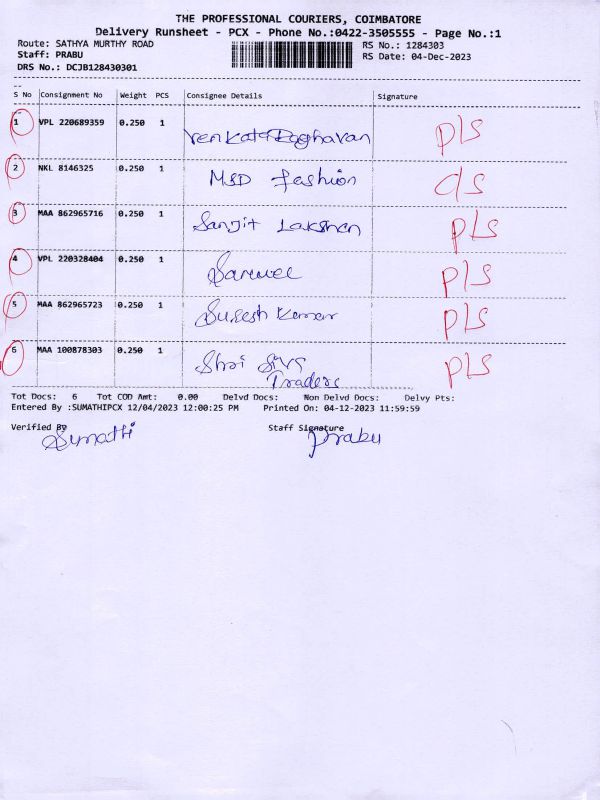 THE PROFESSIONAL COURIERS, COIMBATORE
Delivery Runsheet - PCX - Phone No.:0422-3505555 - Page No.:1
Route: SATHYA MURTHY ROAD RS No.: 1284303
Staff: PRABU RS Date: 04-Dec-2023
DRS No.: DCJB128430301
S No Consignment No Weight PCS Consignee Details Signature
1 VPL 220689359 0.250 1 Venkata Raghavan P/S
2 NKL 8146325 0.250 1 MSD Fashion C/S
3 MAA 862965716 0.250 1 Sanjit Lakshan P/S
4 VPL 220328404 0.250 1 P/S
5 MAA 862965723 0.250 1 Suresh Kumar P/S
6 MAA 100878303 0.250 1 Shri Siva P/S
Traders
Tot Docs: 6 Tot COD Amt: 0.00 Delvd Docs: Non Delvd Docs: Delvy Pts:
Entered By :SUMATHIPCX 12/04/2023 12:00:25 PM Printed On: 04-12-2023 11:59:59
Verified By Staff Signature
Sumathi Prabu